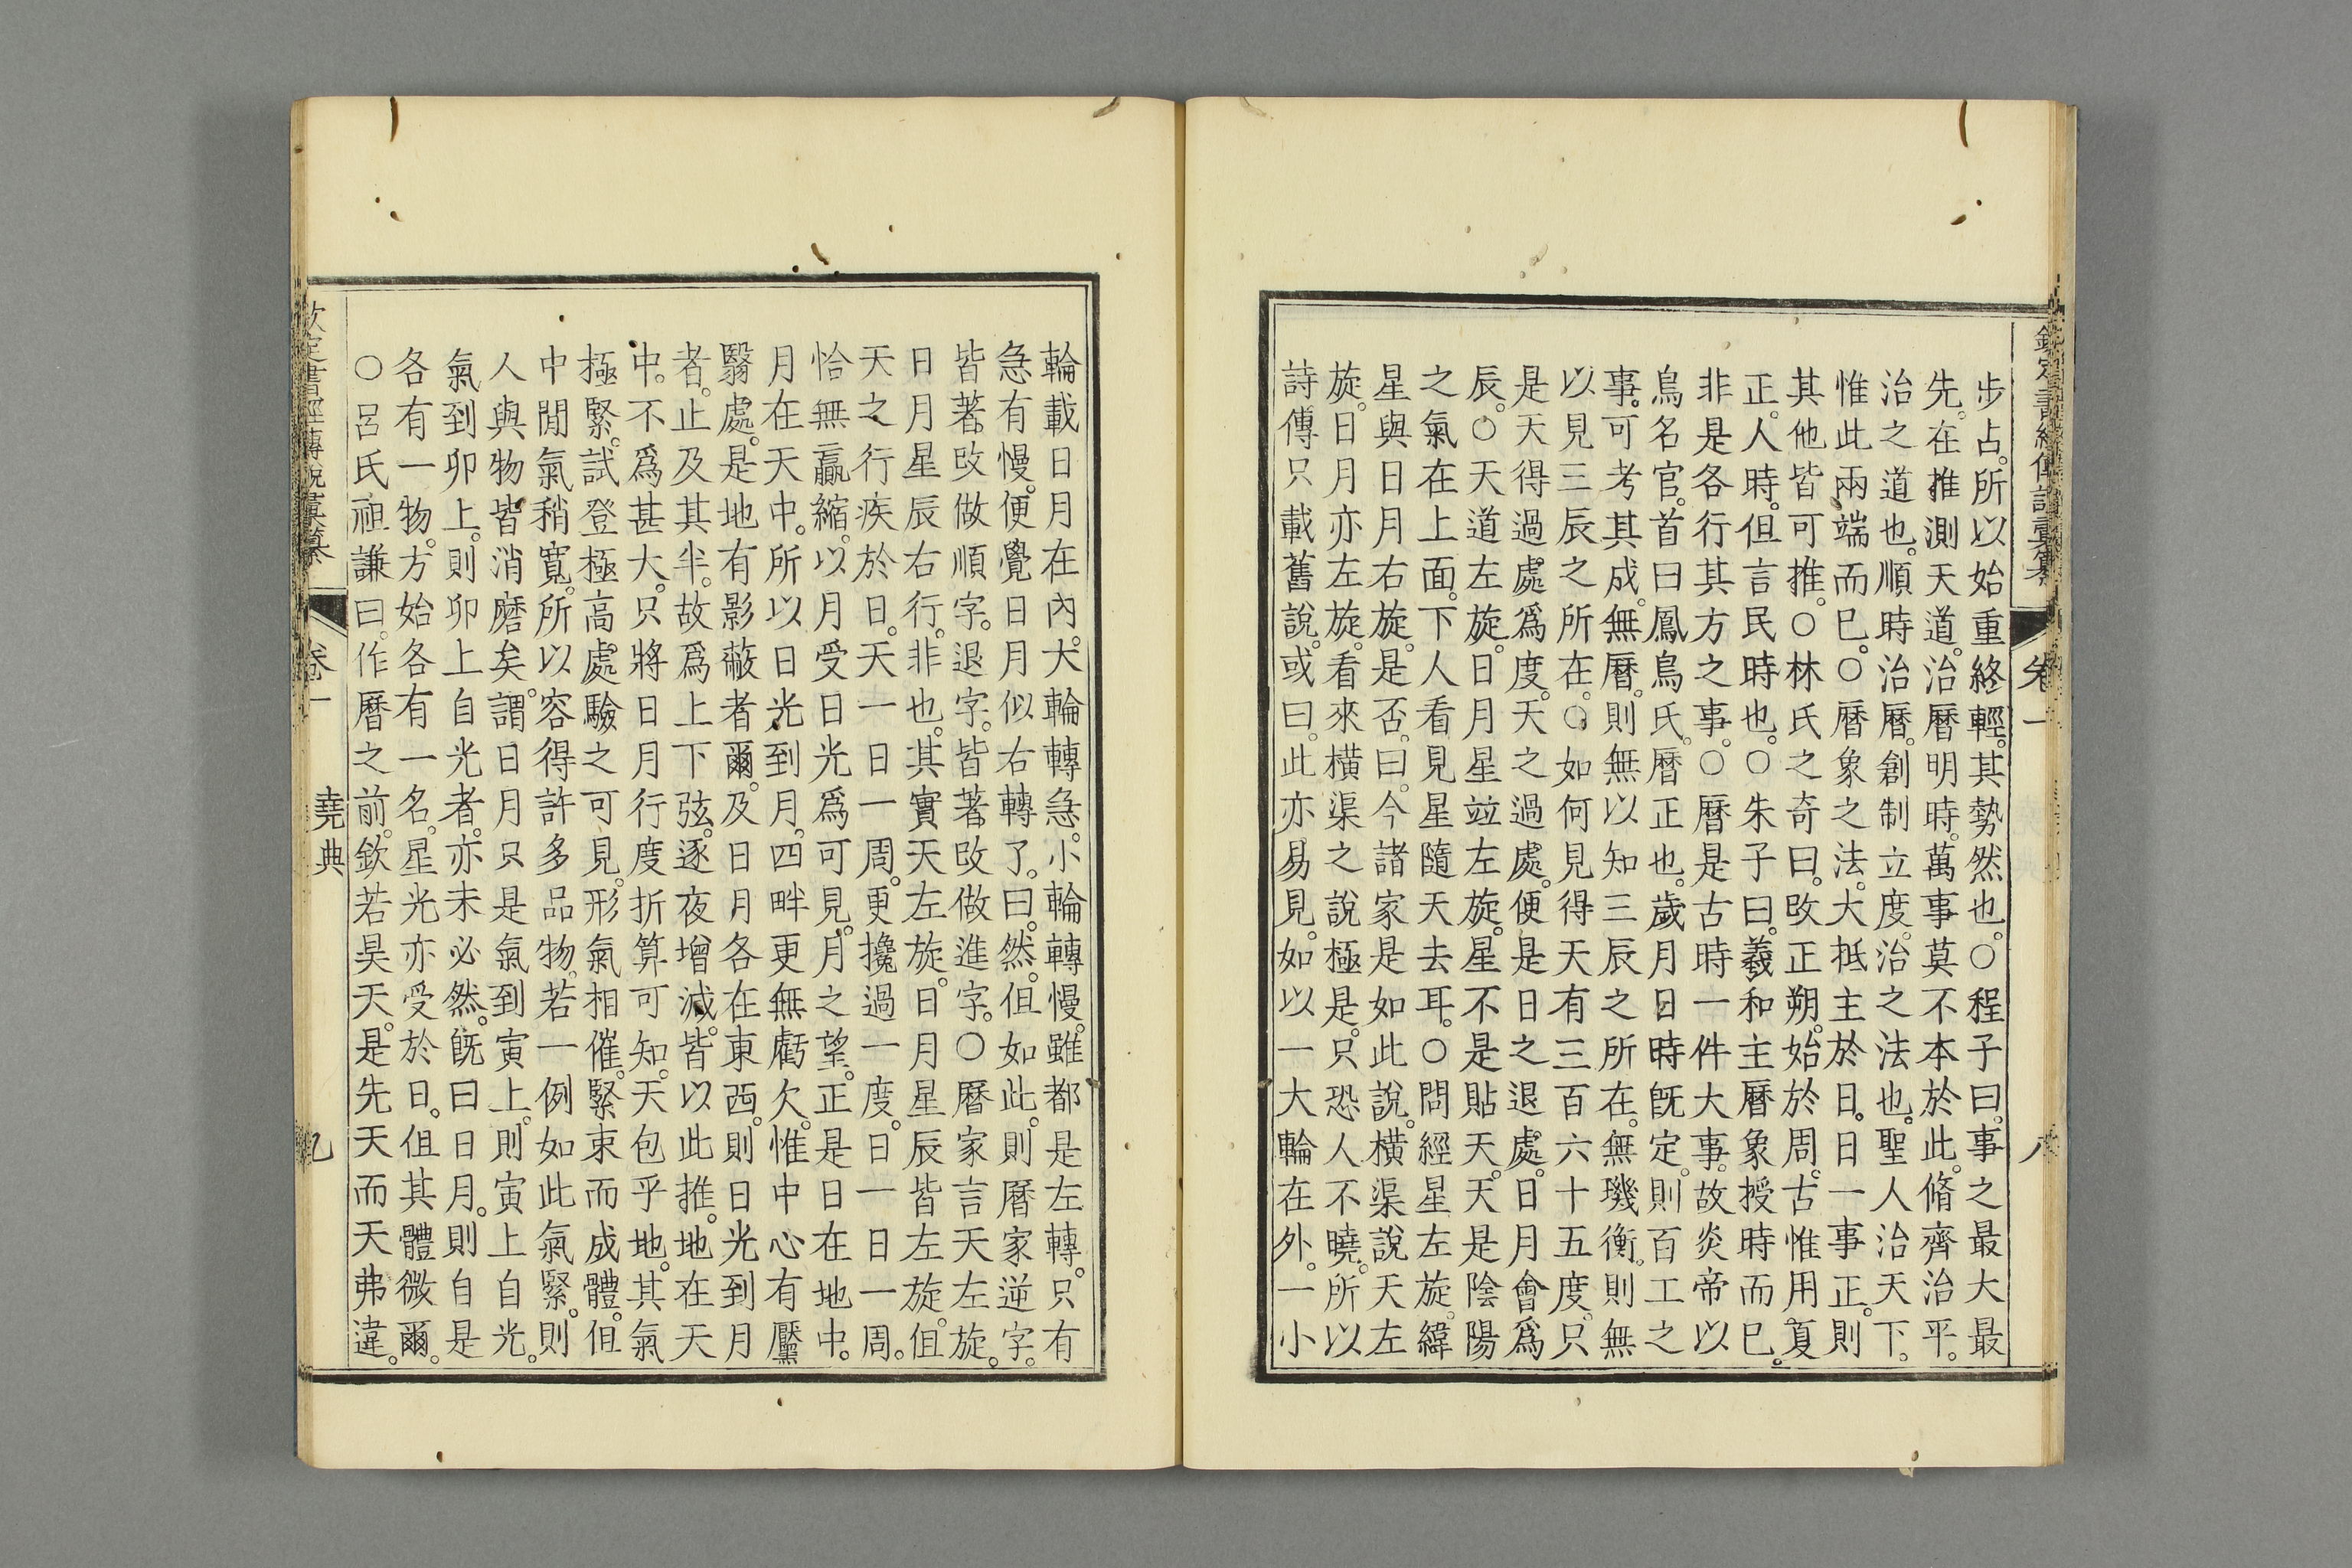 欽定書經傳說彙纂 卷一 八
步占。所以始重終輕。其勢然也。○程子曰。事之最大最
先。在推測天道。治曆明時。萬事莫不本於此。脩齊治平。
治之道也。順時治曆。創制立度。治之法也。聖人治天下。
惟此兩端而已。○曆象之法。大抵主於日。日一事正。則
其他皆可推。○林氏之奇曰。改正朔。始於周。古惟用夏
正。人時。但言民時也。○朱子曰。羲和主曆象授時而已。
非是各行其方之事。○曆是古時一件大事。故炎帝以
鳥名官。首曰鳳鳥氏。曆正也。歲月日時旣定。則百工之
事。可考其成。無曆。則無以知三辰之所在。無璣衡。則無
以見三辰之所在。○如何見得天有三百六十五度。只
是天得過處爲度。天之過處。便是日之退處。日月會爲
辰。○天道左旋。日月星竝左旋。星不是貼天。天是陰陽
之氣在上面。下人看見星隨天去耳。○問經星左旋。緯
星與日月右旋。是否。曰。今諸家是如此說。橫渠說天左
旋。日月亦左旋。看來橫渠之說極是。只恐人不曉。所以
詩傳只載舊說。或曰。此亦易見。如以一大輪在外。一小
輪載日月在內。大輪轉急。小輪轉慢。雖都是左轉。只有
急有慢。便覺日月似右轉了。曰。然。但如此。則曆家逆字。
皆著改做順字。退字。皆著改做進字。○曆家言天左旋。
日月星辰右行。非也。其實天左旋。日月星辰皆左旋。但
天之行疾於日。天一日一周。更攙過一度。日一日一周。
恰無贏縮。以月受日光爲可見。月之望。正是日在地中。
月在天中。所以日光到月。四畔更無虧欠。惟中心有黶
翳處。是地有影蔽者爾。及日月各在東西。則日光到月
者。止及其半。故爲上下弦。逐夜增減。皆以此推。地在天
中。不爲甚大。只將日月行度折算可知。天包乎地。其氣
極緊。試登極高處驗之可見。形氣相催。緊束而成體。但
中閒氣稍寬。所以容得許多品物。若一例如此氣緊。則
人與物皆消磨矣。謂日月只是氣到寅上。則寅上自光。
氣到卯上。則卯上自光者。亦未必然。旣曰日月。則自是
各有一物。方始各有一名。星光亦受於日。但其體微爾。
○呂氏祖謙曰。作曆之前。欽若昊天。是先天而天弗違。
欽定書經傳說彙纂 卷一 堯典 九